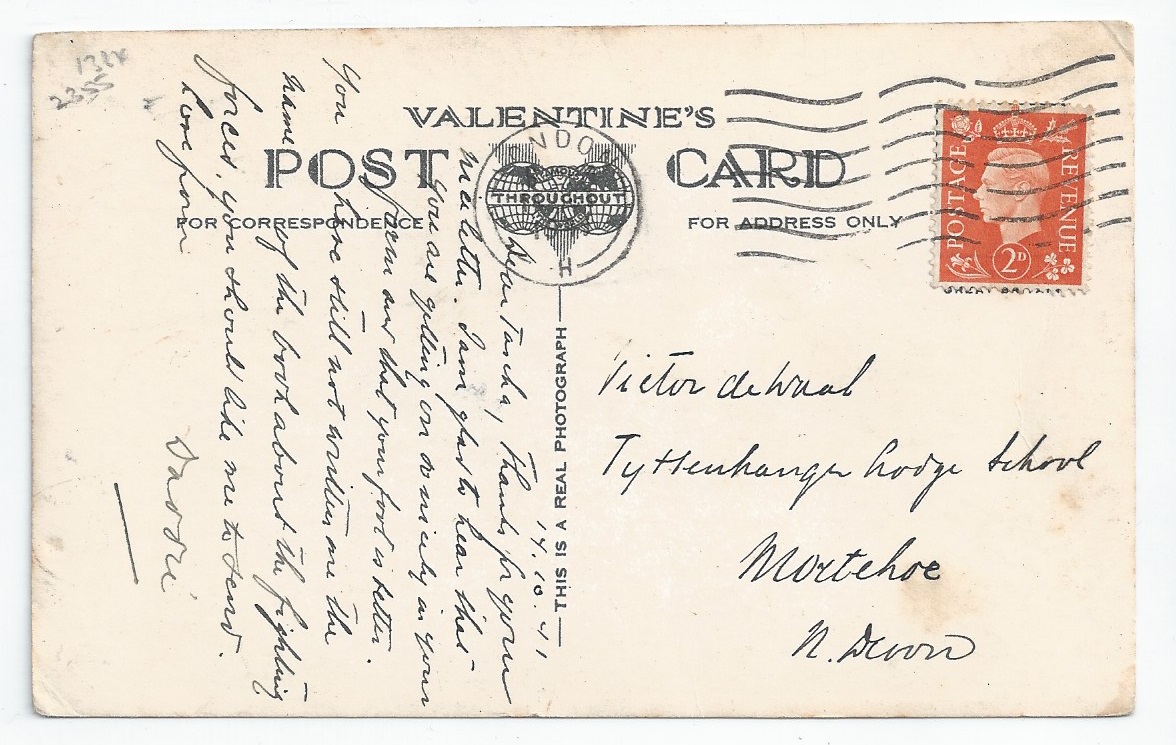 1324
2355
VALENTINE'S
POST CARD
NDO
FAMOUS
THROUGHOUT
H
FOR CORRESPONDENCE
FOR ADDRESS ONLY
POSTAGE
REVENUE
2D
THIS IS A REAL PHOTOGRAPH
14.10.41
Dear Tascha, Thanks for your
nice letter. I am glad to hear that
you are getting on so nicely in your
form and that your foot is better.
You have still not written me the
name of the book about the fighting
forces, you should like me to send.
Love from
Daddie
Victor de Waal
Tyttenhanger Lodge School
Mortehoe
N. Devon